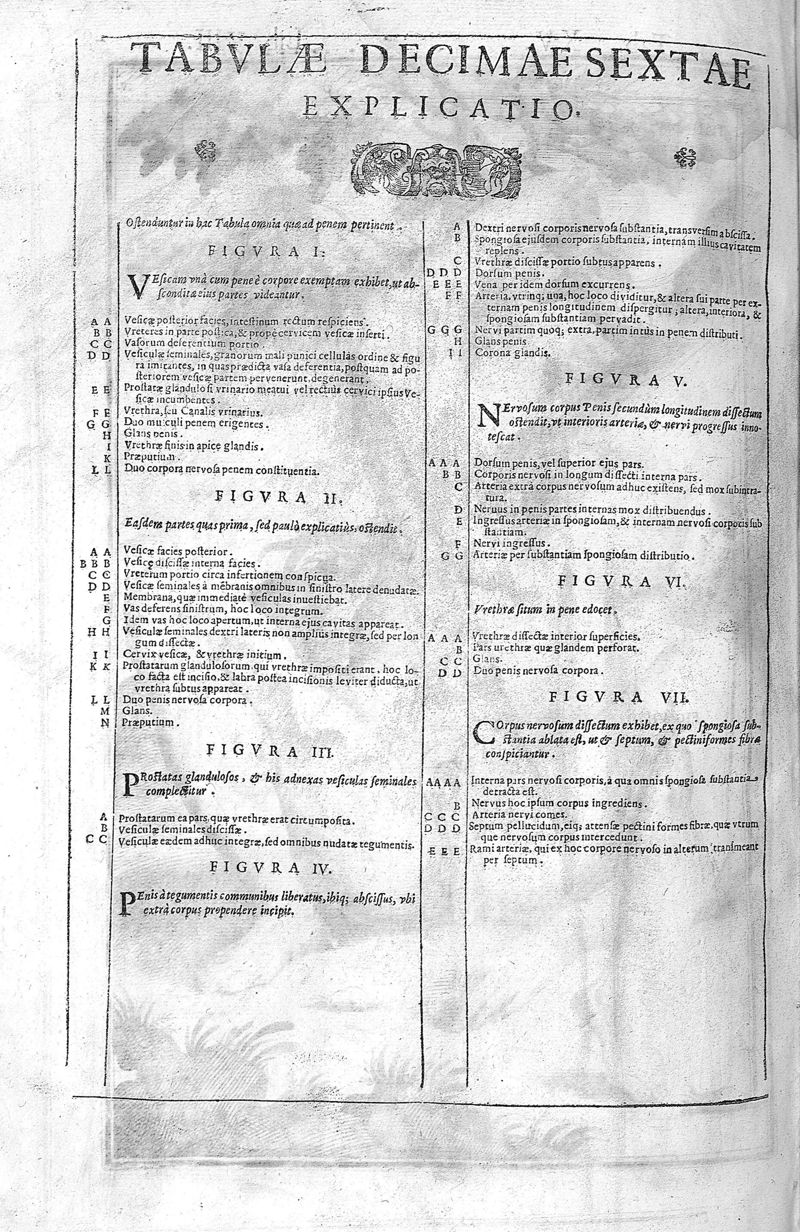 TABVLÆ DECIMAE SEXTAE
EXPLICATIO.
Ostenduntur in hac Tabula omnia quæ ad penem pertinent.
FIGVRA I.
VEsicam vnà cum pene è corpore exemptam exhibet, ut ab-
sconditæ eius partes videantur.
A A Vesicæ posterior facies, intestinum rectum respiciens.
B B Vreteres in parte postica, & propè cervicem vesicæ inserti.
C C Vasorum deferentium portio.
D D Vesiculæ seminales, granorum mali punici cellulas ordine & figu
ra imitantes, in quas prædicta vasa deferentia, postquam ad po-
steriorem vesicæ partem pervenerunt, degenerant.
E E Prostatæ glandulosi vrinario meatui vel rectius cervici ipsius Ve-
sicæ incumbentes.
F F Vrethra, seu Canalis vrinarius.
G G Duo musculi penem erigentes.
H Glans penis.
I Vrethræ finis in apice glandis.
K Præputium.
L L Duo corpora nervosa penem constituentia.
FIGVRA II.
Easdem partes quas prima, sed paulò explicatiùs, ostendit.
A A Vesicæ facies posterior.
B B B Vesicę discissæ interna facies.
C C Vreterum portio circa insertionem conspicua.
D D Vesicæ seminales à mēbranis omnibus in sinistro latere denudatæ.
E Membrana, quæ immediatè vesiculas inuestiebat.
F Vas deferens sinistrum, hoc loco integrum.
G Idem vas hoc loco apertum, ut interna ejus cavitas appareat.
H H Vesiculæ seminales dextri lateris non ampliùs integræ, sed per lon
gum dissectæ.
I I Cervix vesicæ, & vrethræ initium.
K K Prostatarum glandulosorum, qui vrethræ impositi erant, hoc lo-
co facta est incisio, & labra postea incisionis leviter diducta, ut
vrethra subtus appareat.
L L Duo penis nervosa corpora.
M Glans.
N Præputium.
FIGVRA III.
PRostatas glandulosos, & his adnexas vesiculas seminales
complectitur.
A Prostatarum ea pars, quæ vrethræ erat circumposita.
B Vesiculæ seminales discissæ.
C C Vesiculæ eædem adhuc integræ, sed omnibus nudatæ tegumentis.
FIGVRA IV.
PEnis à tegumentis communibus liberatus, ibiq; abscissus, vbi
extrà corpus propendere incipit.
A Dextri nervosi corporis nervosa substantia, transversim abscissa.
B Spongiosa ejusdem corporis substantia, internam illius cavitatem
replens.
C Vrethræ discissæ portio subtus apparens.
D D D Dorsum penis.
E E E Vena per idem dorsum excurrens.
F F Arteria vtrinq; una, hoc loco dividitur, & altera sui parte per ex-
ternam penis longitudinem dispergitur; altera, interiora, &
spongiosam substantiam pervadit.
G G G Nervi partim quoq; extra, partim intùs in penem distributi.
H Glans penis
I I Corona glandis.
FIGVRA V.
NErvosum corpus Penis secundùm longitudinem dissectum
ostendit, vt interioris arteriæ, & nervi progressus inno-
tescat.
A A A Dorsum penis, vel superior ejus pars.
B B Corporis nervosi in longum dissecti interna pars.
C Arteria extrà corpus nervosum adhuc existens, sed mox subintra-
tura.
D Neruus in penis partes internas mox distribuendus.
E Ingressus arteriæ in spongiosam, & internam nervosi corporis sub
stantiam.
F Nervi ingressus.
G G Arteriæ per substantiam spongiosam distributio.
FIGVRA VI.
Vrethræ situm in pene edocet.
A A A Vrethræ dissectæ interior superficies.
B Pars urethræ quæ glandem perforat.
C C Glans.
D D Duo penis nervosa corpora.
FIGVRA VII.
COrpus nervosum dissectum exhibet, ex quo spongiosa sub-
stantia ablata est, ut & septum, & pectiniformes fibræ
conspiciantur.
A A A A Interna pars nervosi corporis, à qua omnis spongiosa substantia
detracta est.
B Nervus hoc ipsum corpus ingrediens.
C C C Arteria nervi comes.
D D D Septum pellucidum, eiq; attensæ pectiniformes fibræ, quæ vtrum
que nervosum corpus intercedunt.
E E E Rami arteriæ, qui ex hoc corpore nervoso in alterum transmeant
per septum.